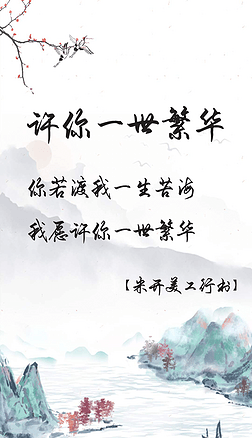 许你一世繁华
你若渡我一生苦海
我愿许你一世繁华
【米开美工行书】